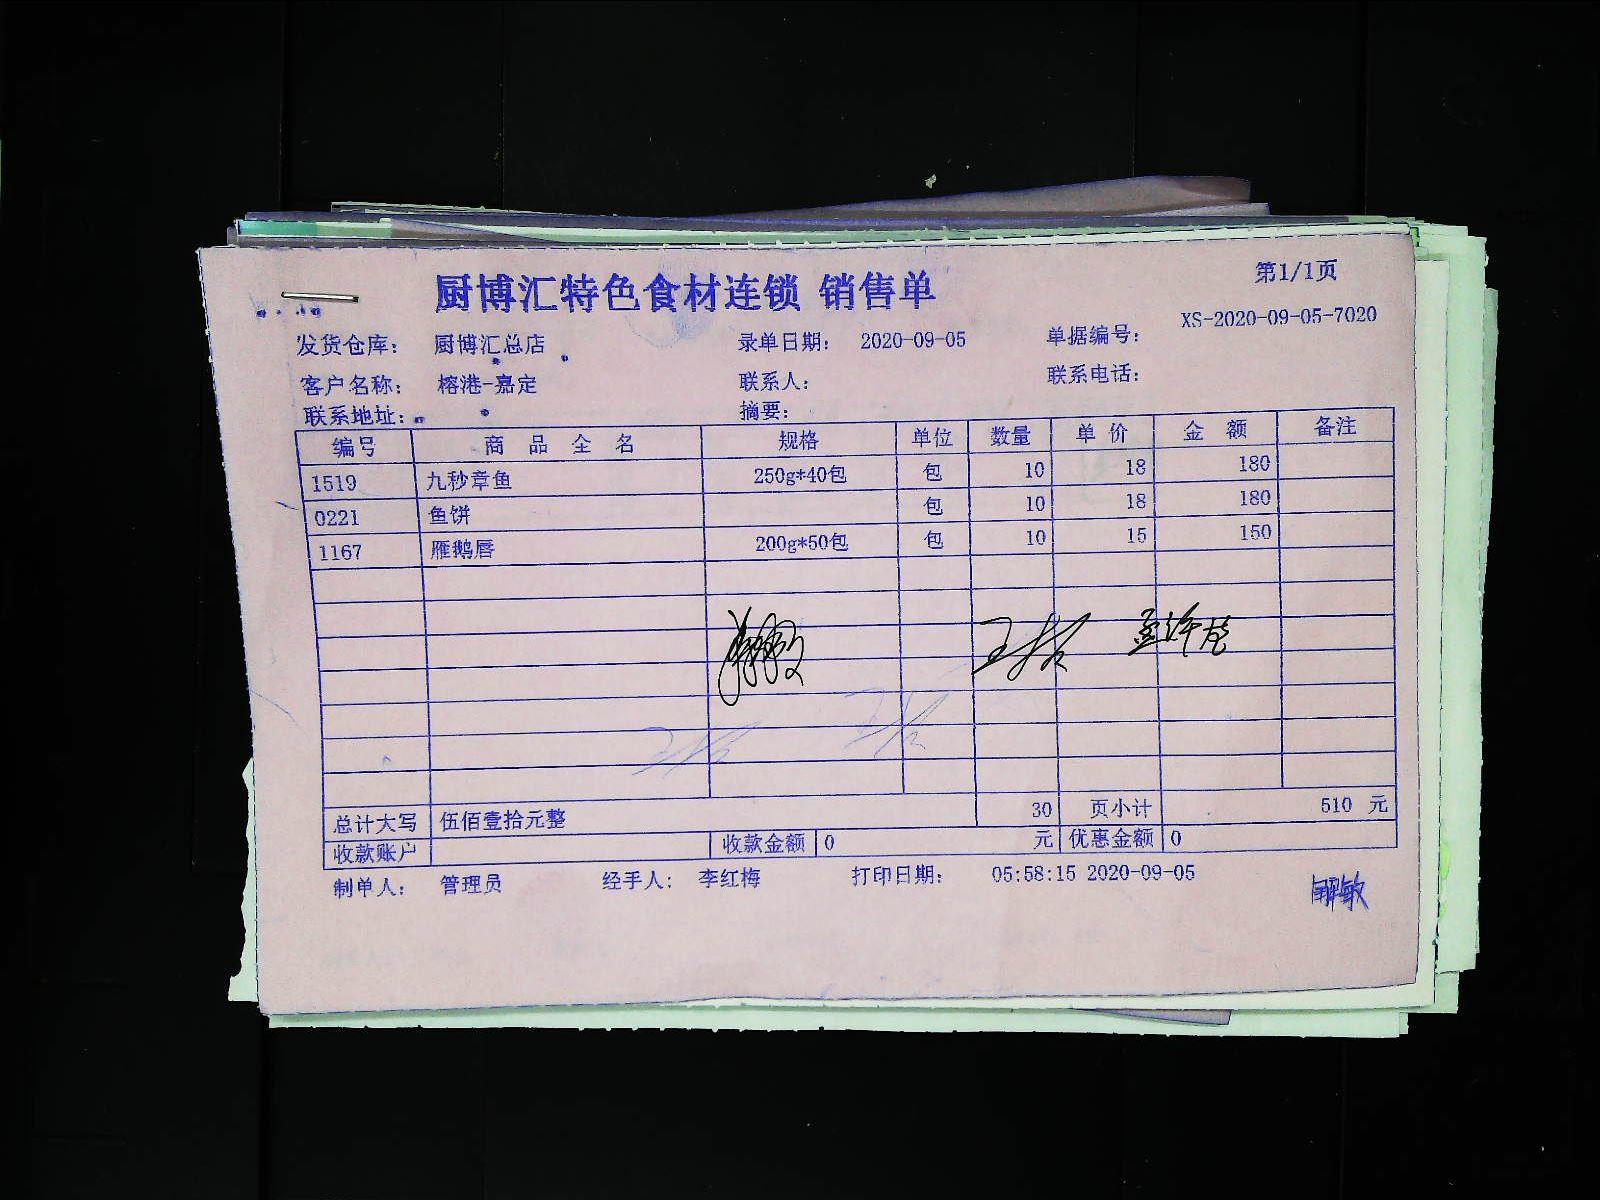 厨博汇特色食材连锁 销售单
第1/1页
发货仓库： 厨博汇总店 录单日期： 2020-09-05 单据编号： XS-2020-09-05-7020
客户名称： 榕港-嘉定 联系人： 联系电话：
联系地址： 摘要：
编号 商品全名 规格 单位 数量 单价 金额 备注
1519 九秒章鱼 250g*40包 包 10 18 180
0221 鱼饼 包 10 18 180
1167 雁鹅唇 200g*50包 包 10 15 150
总计大写 伍佰壹拾元整 30 页小计 510 元
收款账户 收款金额 0 元 优惠金额 0
制单人： 管理员 经手人： 李红梅 打印日期： 05:58:15 2020-09-05